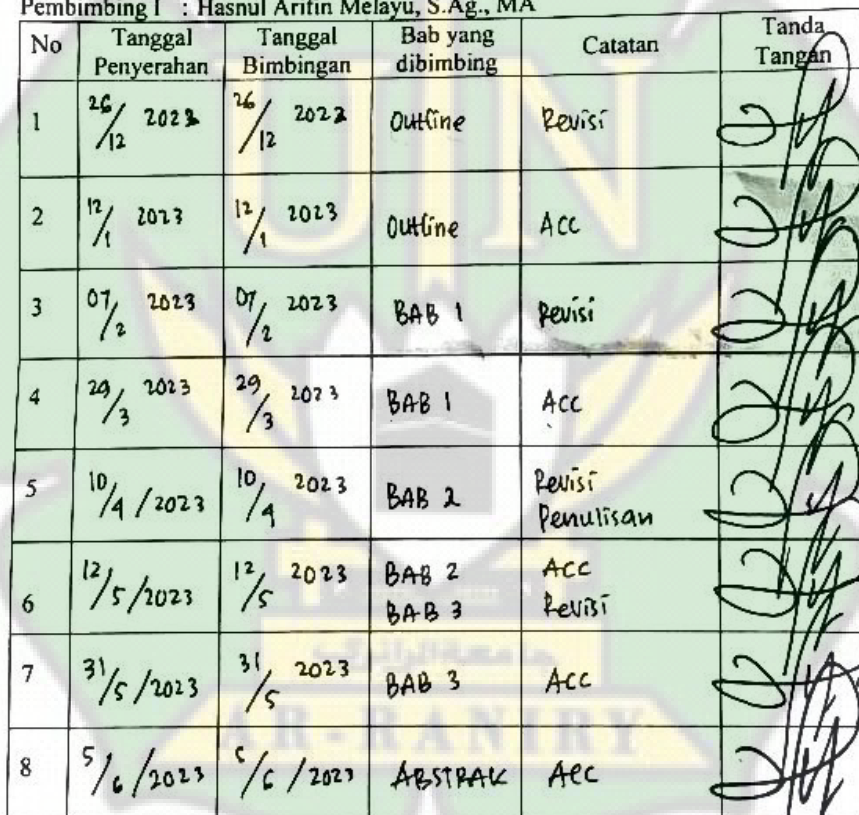 Pembimbing I : Hasnul Arifin Melayu, S.Ag., MA
No Tanggal Penyerahan Tanggal Bimbingan Bab yang dibimbing Catatan Tanda Tangan
1 26/12 2022 26/12 2022 Outline Revisi
2 12/1 2023 12/1 2023 Outline ACC
3 07/2 2023 07/2 2023 BAB 1 Revisi
4 29/3 2023 29/3 2023 BAB 1 ACC
5 10/4/2023 10/4 2023 BAB 2 Revisi Penulisan
6 12/5/2023 12/5 2023 BAB 2 ACC
BAB 3 Revisi
7 31/5/2023 31/5 2023 BAB 3 ACC
8 5/6/2023 /6/2023 ABSTRAK ACC
UIN
جامعة الرانري
AR-RANIRY